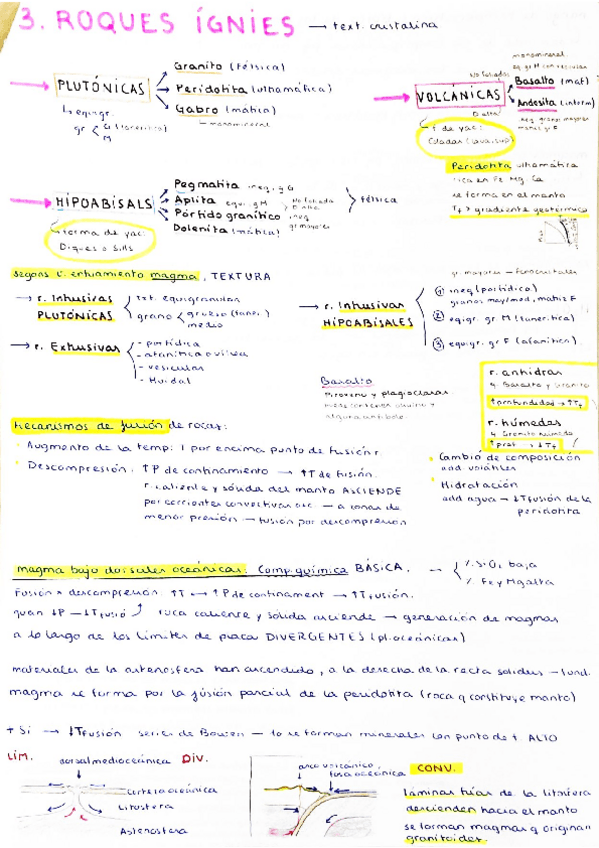 3. ROQUES ÍGNIES → text. cristalina
PLUTÓNICAS
Granito (félsica)
Peridotita (ultramáfica)
Gabro (máfica)
↳ equigr.
gr
M
VOLCÁNICAS
No foliadas
monomineral
Basalto (máf)
Andesita (interm)
f de yac:
Coladas (lava, sup)
Peridotita ultramáfica
rica en Fe Mg Ca
se forma en el manto
Tf > gradiente geotérmico
HIPOABISALS
Pegmatita ineq. g G
Aplita equi. g M
Pórfido granítico ineq
Dolerita (máfica) gr mayores
No foliada
félsica
forma de yac:
Diques o Sills
segons l'enfriamiento magma, TEXTURA
→ r. Intrusivas
PLUTÓNICAS
txt. equigranular
grano
grueso (faner.)
medio
→ r. Extrusivas
- porfídica
- afanítica o vítrea
- vesicular
- fluidal
→ r. Intrusivas
HIPOABISALES
gr. mayores — fenocristales
① ineq (porfídica)
granos may/med, matriz F
② equigr. gr. M
③ equigr. gr F (afanítica).
Basalto
Piroxeno y plagioclasas.
puede contener olivino y
algún anfíbol
r. anhidras
↳ Basalto y Granito
↑profundidad → ↑Tf
r. húmedas
↳ Granito húmedo
↑prof → ↓Tf
Mecanismos de fusión de rocas:
• Augmento de la temp: T por encima punto de fusión r.
• Descompresión: ↑P de confinamiento → ↑T de fusión.
r. caliente y sólida del manto ASCIENDE
por corrientes convectivas etc. → a zonas de
menor presión → fusión por descompresión
• Cambió de composición
add. volátiles
• Hidratación
add agua → ↓Tfusión de la
peridotita
magma bajo dorsales oceánicas. Comp. química BÁSICA. →
% SiO₂ baja
% Fe y Mg alta
Fusión x descompresión. ↑T → ↑P de confinament → ↑Tfusión.
quan ↓P → ↓Tfusió roca caliente y sólida asciende → generación de magmas
a lo largo de los límites de placa DIVERGENTES (pl. oceánicas)
materiales de la astenosfera han ascendido, a la derecha de la recta solidus — fund.
magma se forma por la fusión parcial de la peridotita (roca q constituye manto)
+ Si → ↓Tfusión series de Bowen — lo se forman minerales con punto de f. ALTO
LÍM. dorsal mediooceánica DIV.
Corteza oceánica
Litosfera
Astenosfera
arco volcánico,
fosa oceánica
CONV.
láminas frías de la litosfera
descienden hacia el manto
se forman magmas q originan
granitoides.